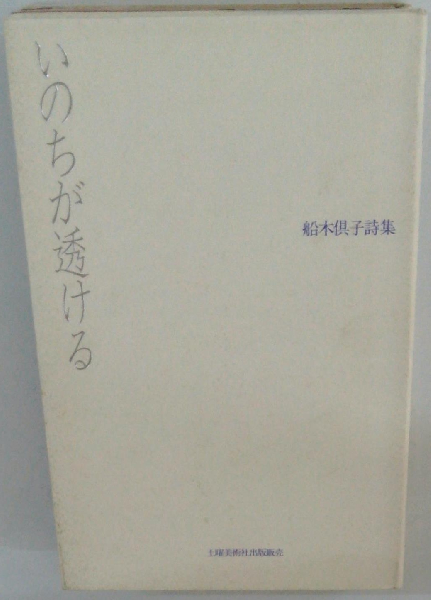 いのちが透ける
船木倶子詩集
土曜美術社出版販売